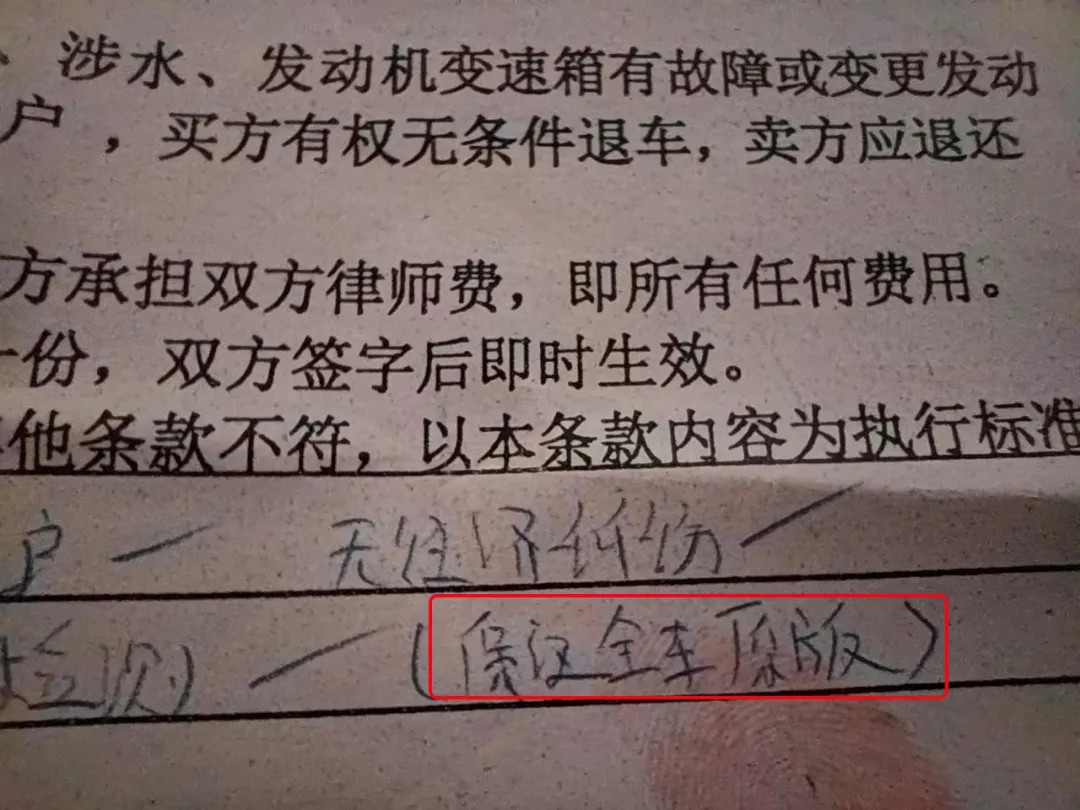 、涉水、发动机变速箱有故障或变更发动
户，买方有权无条件退车，卖方应退还
方承担双方律师费，即所有任何费用。
份，双方签字后即时生效。
他条款不符，以本条款内容为执行标准
户 — 无经济纠纷 —
检测) — (保证全车原版)